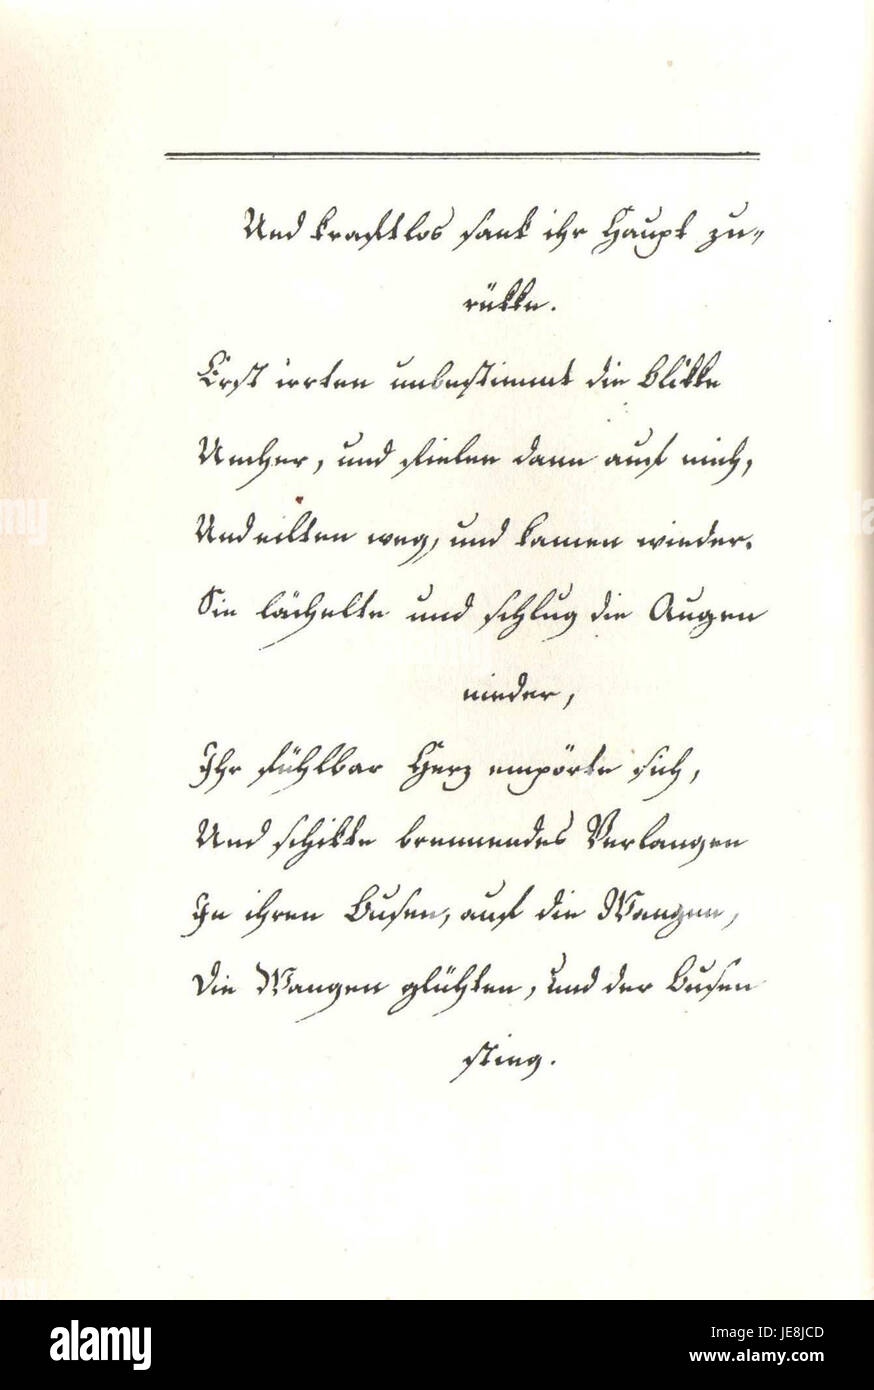 Und kraftlos sank ihr Haupt zu=
rükke.
Erst irrten unbestimmt die Blikke
Umher, und fielen dann auf mich,
Und eilten weg, und kamen wieder.
Sie lächelte und schlug die Augen
nieder,
Ihr fühlbar Herz empörte sich,
Und schikte brennendes Verlangen
In ihren Busen, auf die Wangen,
Die Wangen glühten, und der Busen
stieg.
alamy
Image ID: JE8JCD
www.alamy.com